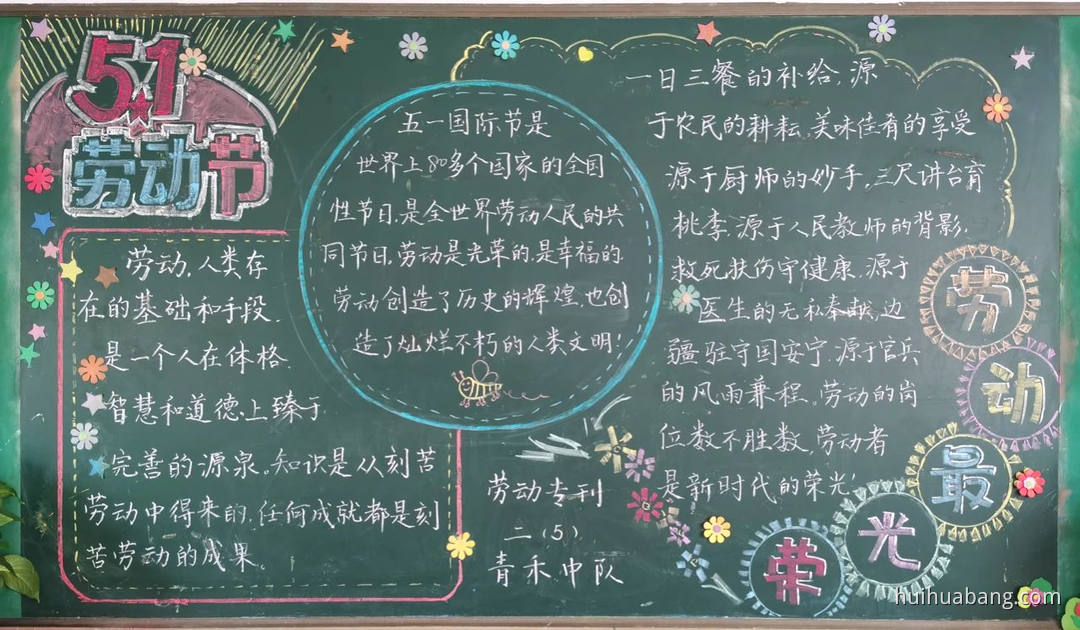 51
劳动节
劳动,人类存
在的基础和手段.
是一个人在体格.
智慧和道德上臻于
完善的源泉.知识是从刻苦
劳动中得来的.任何成就都是刻
苦劳动的成果。
五一国际节是
世界上80多个国家的全国
性节日.是全世界劳动人民的共
同节日,劳动是光荣的.是幸福的.
劳动创造了历史的辉煌,也创
造了灿烂不朽的人类文明!
一日三餐的补给,源
于农民的耕耘,美味佳肴的享受
源于厨师的妙手,三尺讲台育
桃李,源于人民教师的背影.
救死扶伤守健康.源于
医生的无私奉献,边
疆驻守国安宁.源于官兵
的风雨兼程.劳动的岗
位数不胜数,劳动者
是新时代的荣光.
劳动专刊
二(5)
青禾中队
劳
动
最
光
荣
huihuabang.com